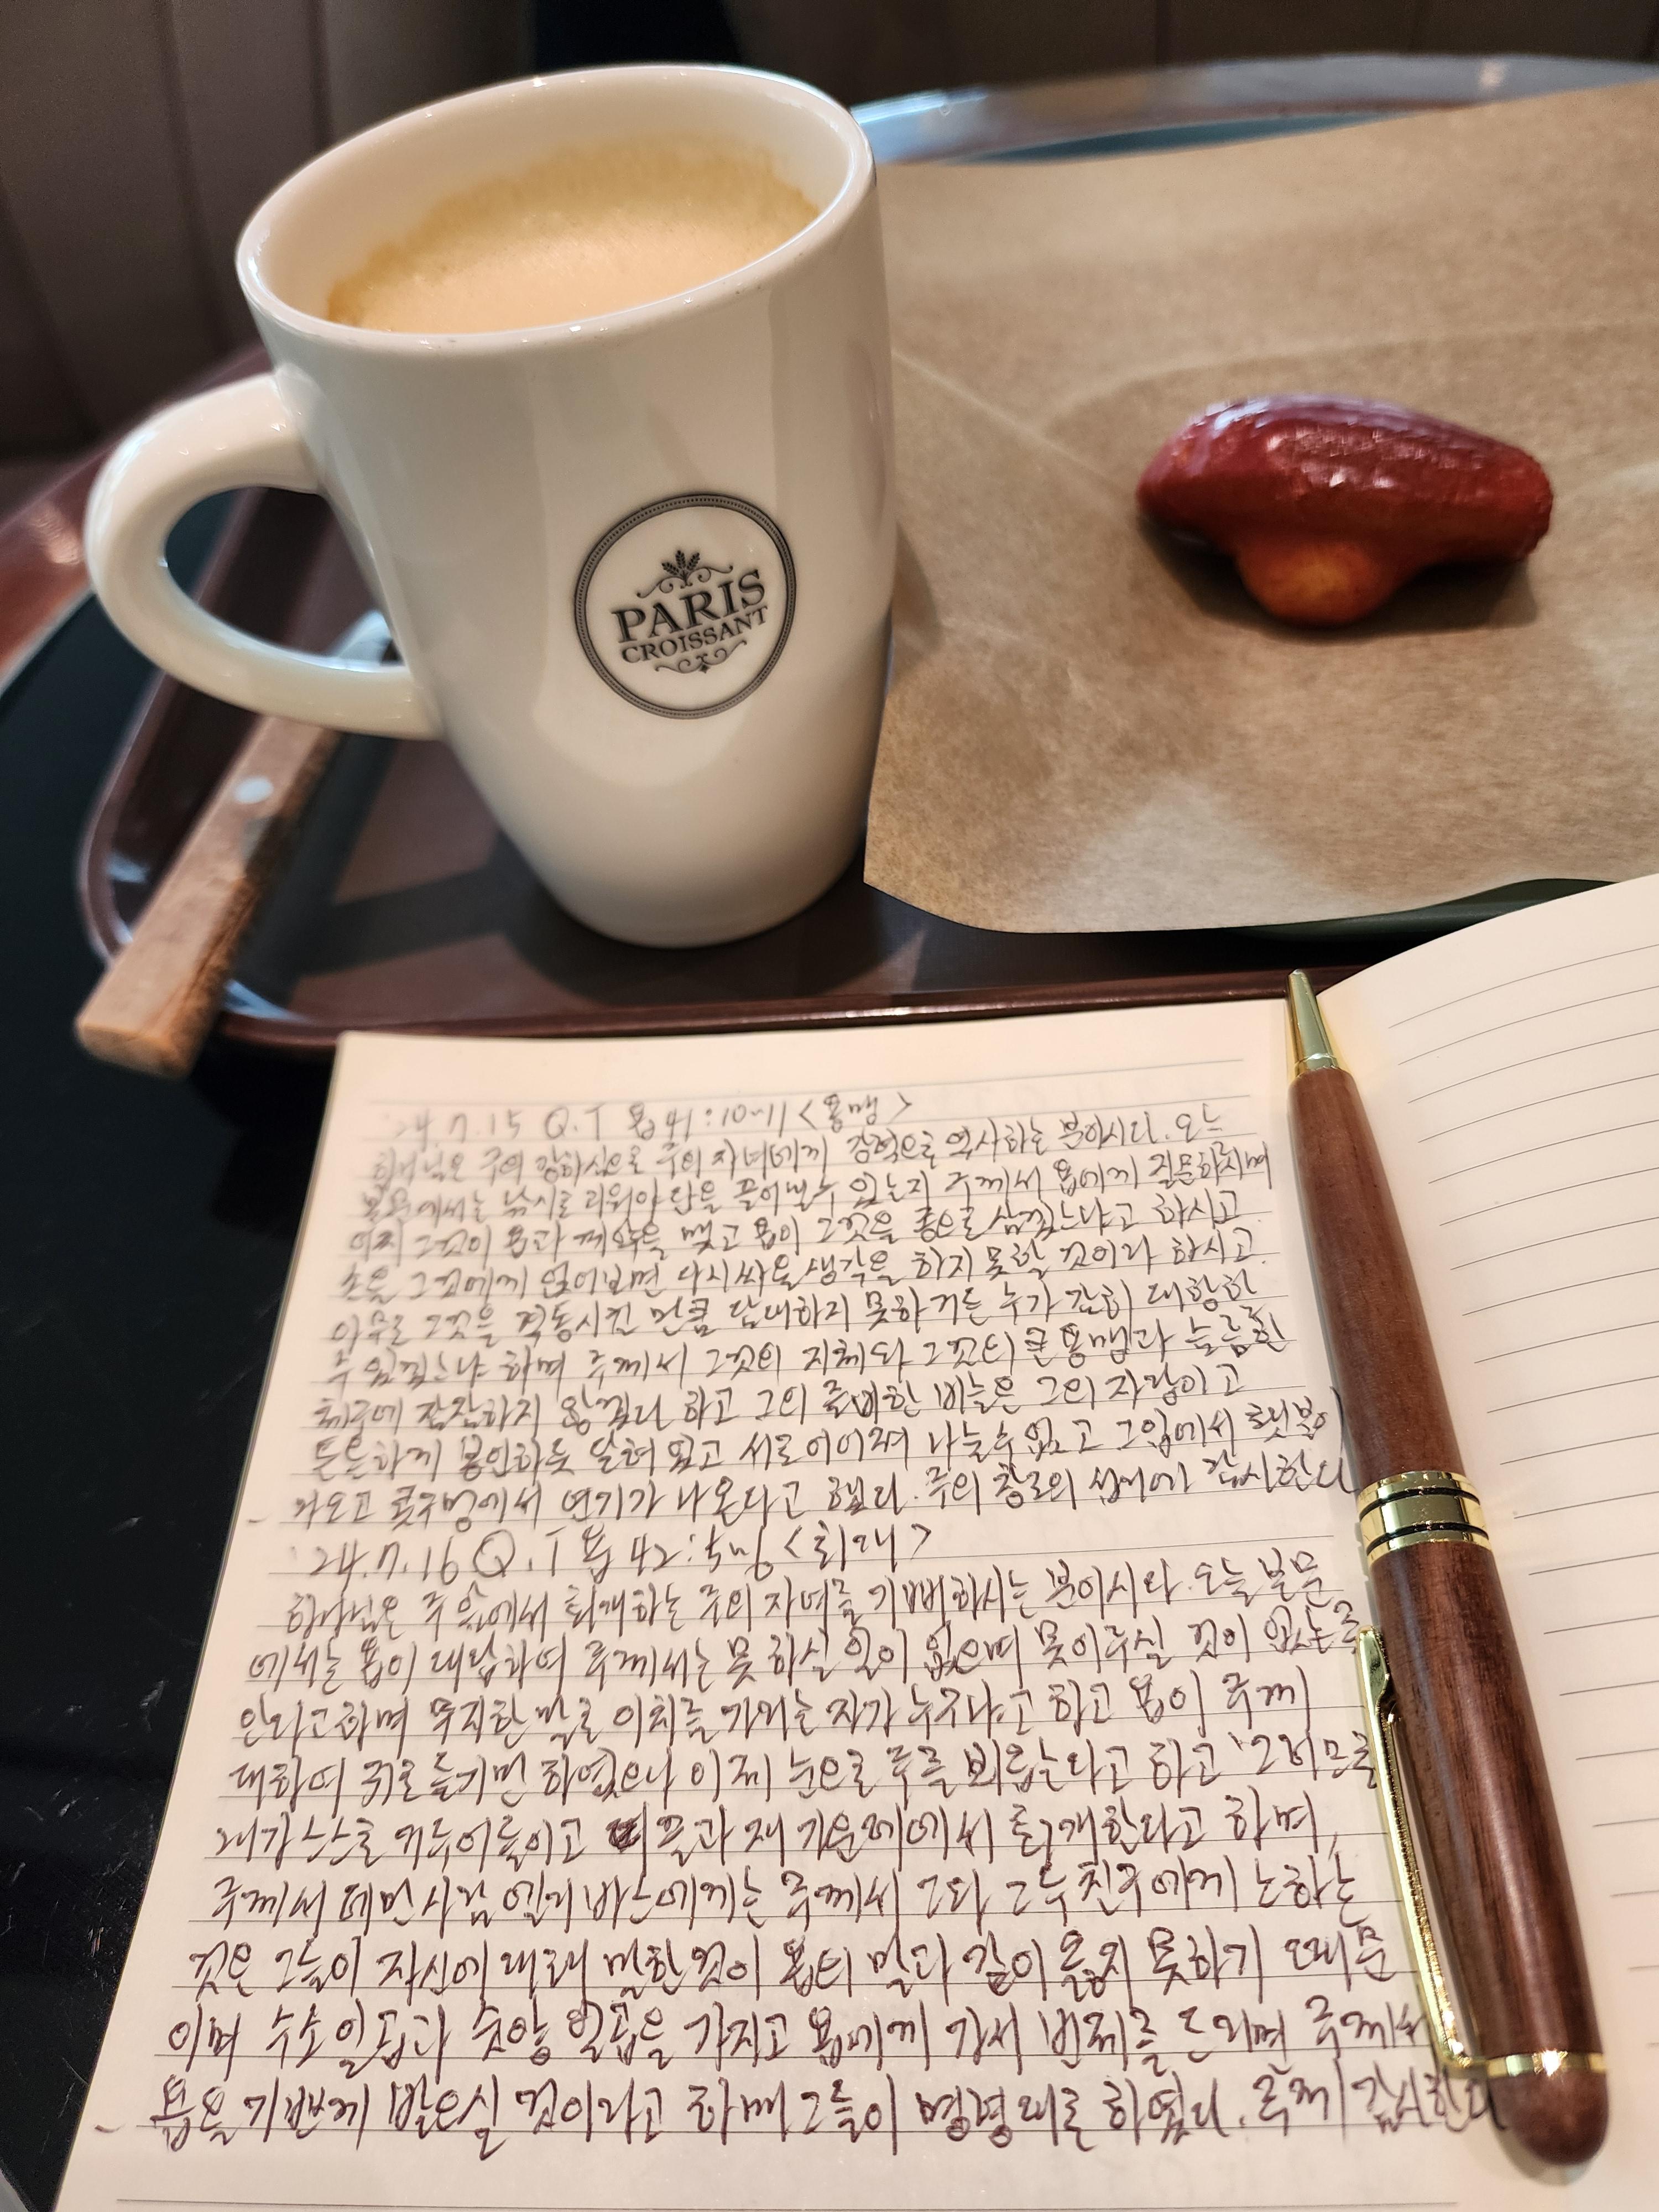 PARIS
CROISSANT
24.7.15 Q.T 욥 41:10-11 <용맹>
하나님은 주의 강하심으로 주의 자녀에게 강력으로 역사하는 분이시다. 오늘
본문에서는 낚시로 리워야단을 끌어낼수 있는지 주께서 욥에게 질문하시며
어찌 그것이 욥과 계약을 맺고 욥이 그것을 종으로 삼겠느냐고 하시고
손을 그것에게 얹어보면 다시싸울생각을 하지 못할 것이라 하시고
아무도 그것을 격동시킬 만큼 담대하지 못하거든 누가 감히 대항할
수 있겠느냐 하며 주께서 그것의 지체와 그것의 큰 용맹과 늠름한
체구에 잠잠하지 않겠다 하고 그의 즐비한 비늘은 그의 자랑이고
튼튼하게 봉인하듯 닫혀 있고 서로이어져 나눌수 없고 그입에서 횃불이
나오고 콧구멍에서 연기가 나온다고 했다. 주의 창조의 섭리에 감사한다
24.7.16 Q.T 욥 42: <회개>
하나님은 주 앞에서 회개하는 주의 자녀를 기뻐하시는 분이시다. 오늘 본문
에서는 욥이 대답하여 주께서는 못 하실 일이 없으며 못이루실 것이 없는줄
안다고하며 무지한 말로 이치를 가리는 자가 누구냐고 하고 욥이 주께
대하여 귀로 듣기만 하였으나 이제 눈으로 주를 뵈옵는다고 하고 그러므로
내가 스스로 거두어들이고 티끌과 재 가운데에서 회개한다고 하며,
주께서 데만사람 엘리바스에게는 주께서 그와 그두친구에게 노하는
것은 그들이 자신에 대해 말한것이 욥의 말과 같이 옳지 못하기 때문
이며 수소일곱과 숫양 일곱을 가지고 욥에게 가서 번제를 드리면 주께서
욥을 기쁘게 받으실 것이라고 하매 그들이 명령대로 하였다. 주께 감사한다